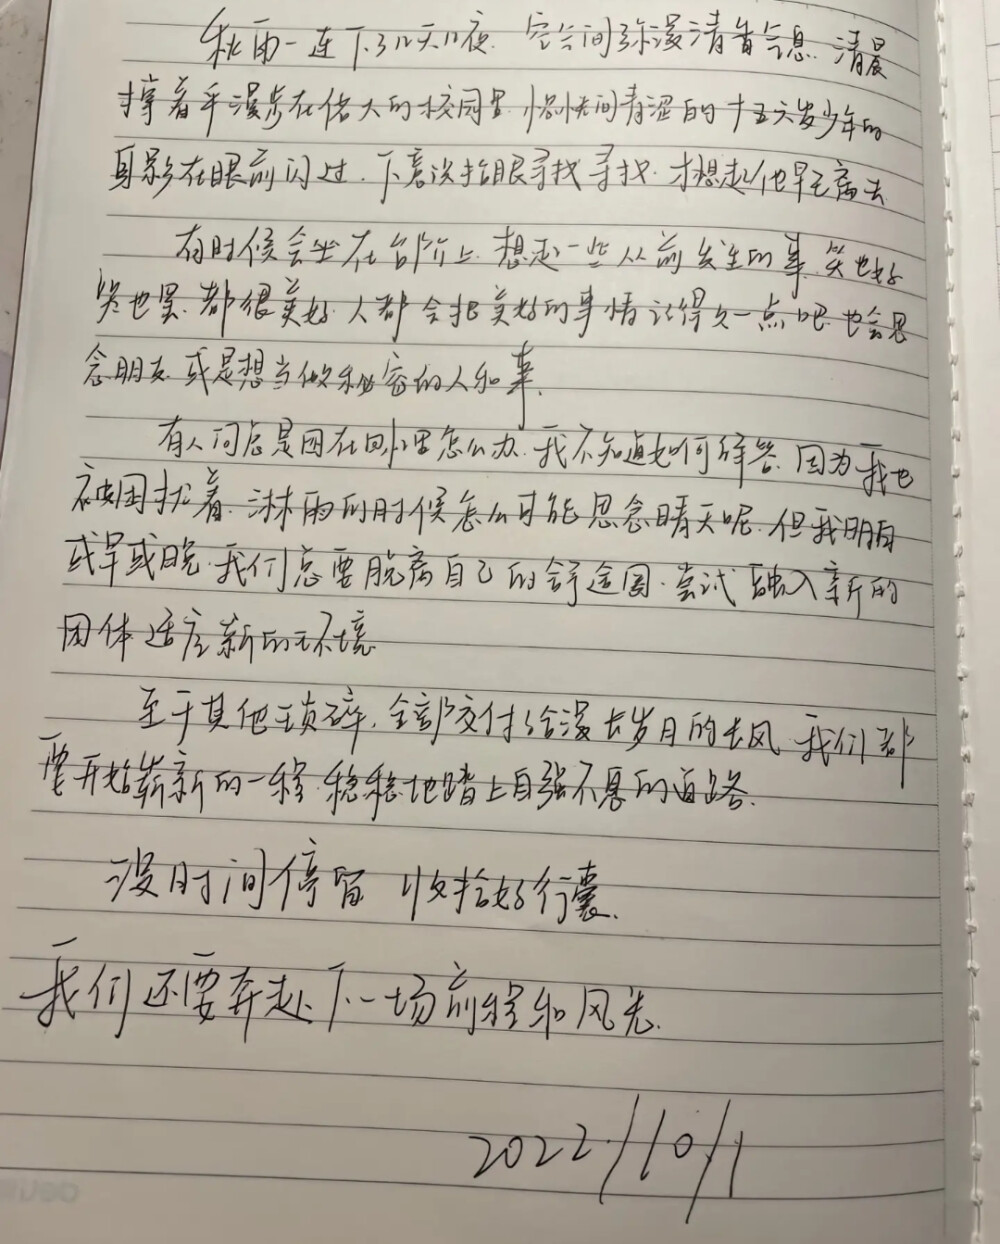 秋雨一连下了几天几夜. 空气间弥漫清省气息. 清晨
撑着伞漫步在偌大的校园里. 恍惚间青涩的十五六岁少年的
身影在眼前闪过. 下意识抬眼寻找寻找. 才想起他早已离去
有时候会坐在台阶上. 想起一些从前发生的事. 笑也好
哭也罢. 都很美好. 人都会把美好的事情记得久一点吧. 也会思
念朋友. 或是想当做秘密的人和事.
有人问总是困在回忆里怎么办. 我不知道如何解答. 因为我也
被困扰着. 淋雨的时候怎么可能思念晴天呢. 但我明白
或早或晚. 我们总要脱离自己的舒适圈. 尝试融入新的
团体适应新的环境
至于其他琐碎. 全部交付给漫长岁月的长风. 我们都
要开始崭新的一程. 稳稳地踏上自强不息的道路.
没时间停留 收拾好行囊.
我们还要奔赴下一场前程和风光.
2022/10/1
deli